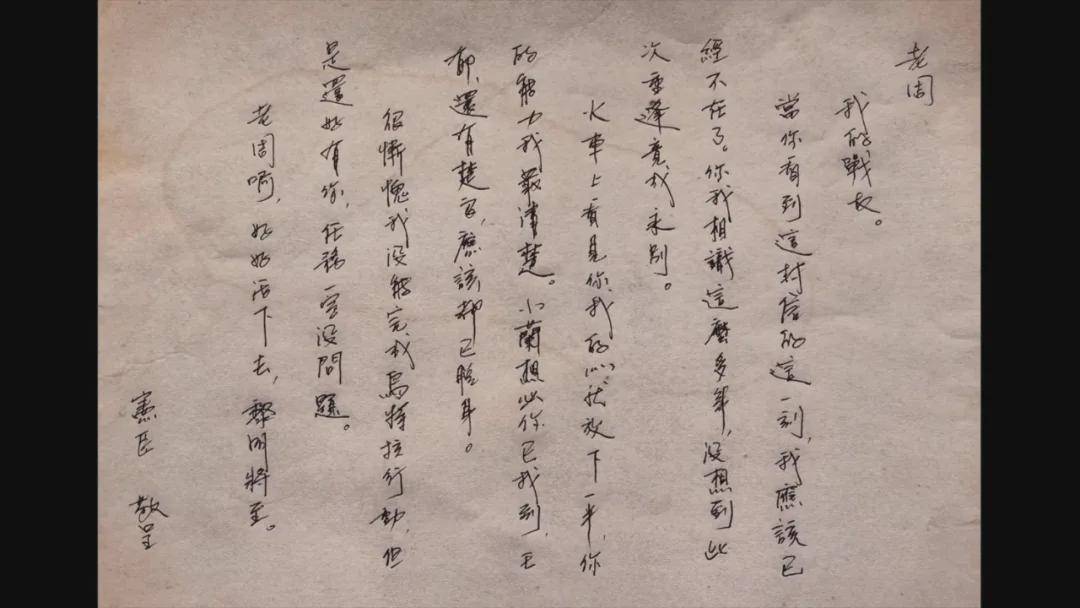 老周
我的戰友。
當你看到這封信的這一刻，我應該已
經不在了。你我相識這麼多年，沒想到此
次重逢竟成永別。
火車上看見你，我的心就放下一半，你
的能力我最清楚。小蘭想必你已找到，王
郁，還有楚良，應該都已脫身。
很慚愧我沒能完成烏特拉行動，但
是還好有你，任務一定沒問題。
老周啊，好好活下去，黎明將至。
憲臣 敬呈